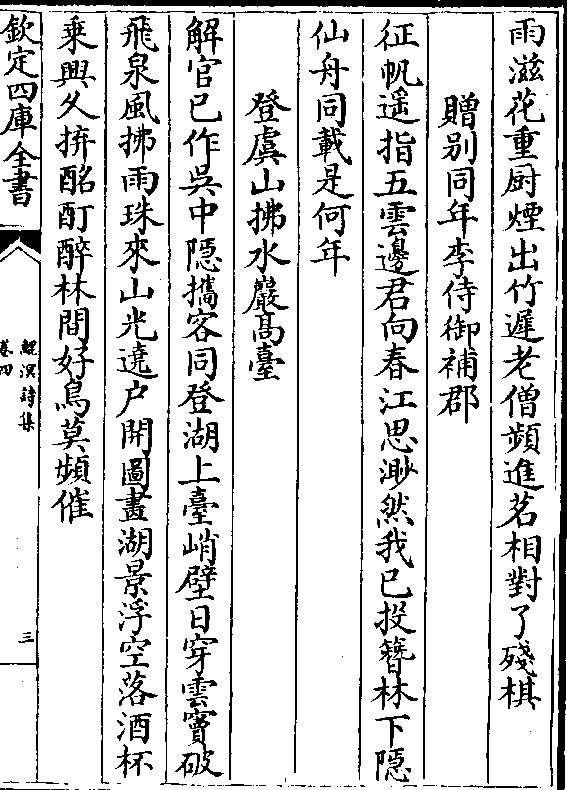 雨滋花重厨煙出竹遲老僧頻進茗相對了殘棋
贈别同年李侍御補郡
征帆遥指五雲邊君向春江思渺然我已投簮林下隠
仙舟同載是何年
登虞山拂水巖髙臺
解官已作吳中隠攜客同登湖上臺峭壁日穿雲竇破
飛泉風拂雨珠來山光遶户開圖畫湖景浮空落酒杯
乗興久拚酩酊醉林間好鳥莫頻催
欽定四庫全書
鯤溟詩集
卷四
三